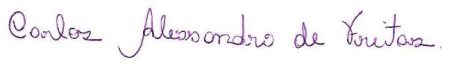 Carlos Alessandro de Freitas.